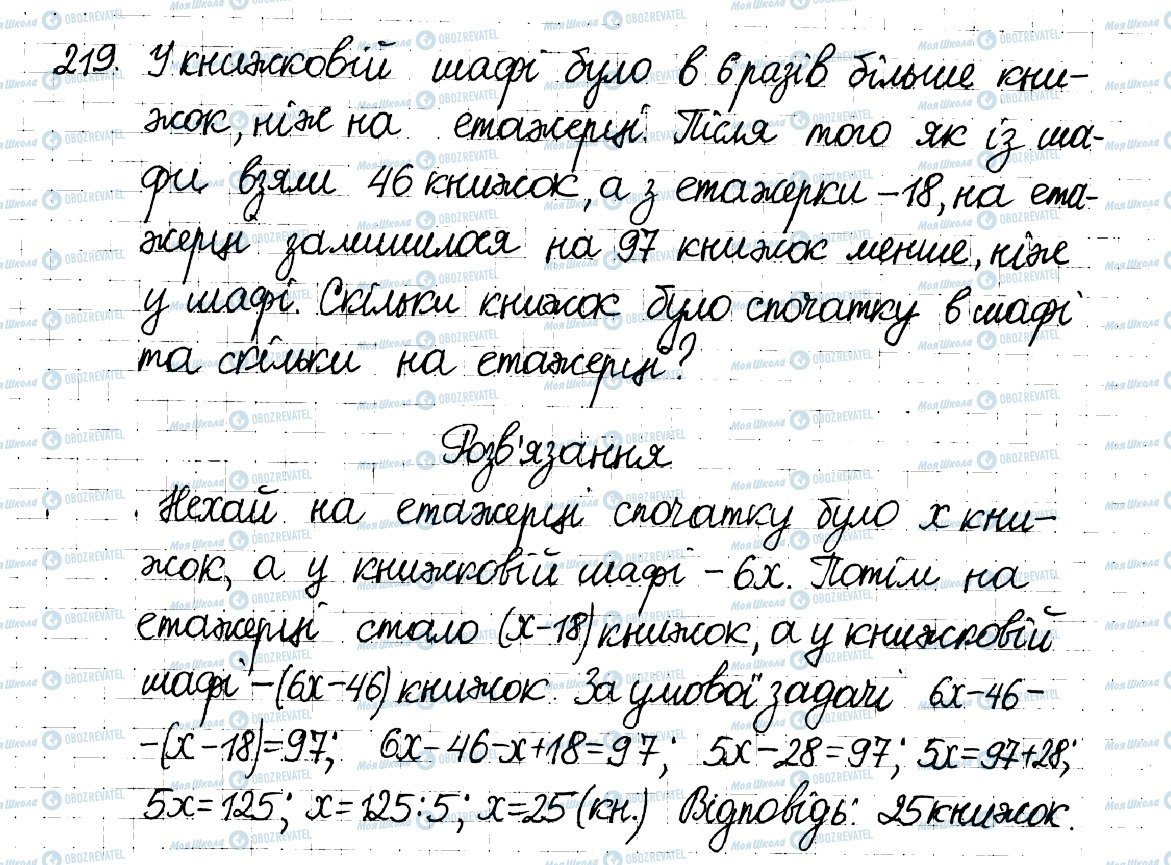 219. У книжковій шафі було в 6 разів більше кни-
жок, ніж на етажерці. Після того як із ша-
фи взяли 46 книжок, а з етажерки – 18, на ета-
жерці залишилося на 97 книжок менше, ніж
у шафі. Скільки книжок було спочатку в шафі
та скільки на етажерці?
Розв'язання
Нехай на етажерці спочатку було x кни-
жок, а у книжковій шафі – 6x. Потім на
етажерці стало (x-18) книжок, а у книжковій
шафі – (6x-46) книжок. За умовою задачі 6x-46-
-(x-18)=97; 6x-46-x+18=97; 5x-28=97; 5x=97+28;
5x=125; x=125:5; x=25 (кн.) Відповідь: 25 книжок.